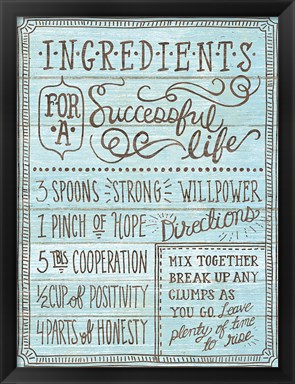 INGREDIENTS
FOR A
Successful
life
3 SPOONS STRONG WILLPOWER
1 PINCH of HOPE
5 TBS COOPERATION
1/2 CUP of POSITIVITY
4 PARTS of HONESTY
Directions
MIX TOGETHER
BREAK UP ANY
CLUMPS AS
YOU GO. Leave
plenty of time
to rise